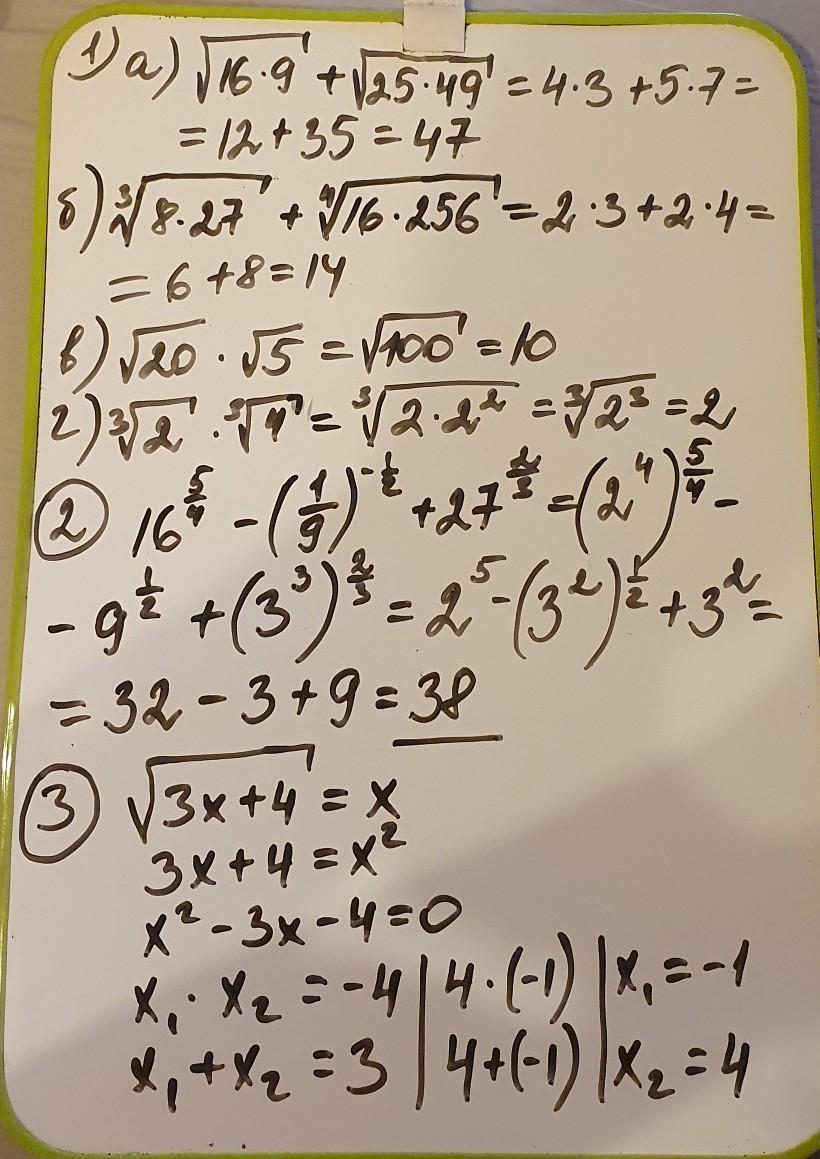 1) а) √(16·9) + √(25·49) = 4·3 + 5·7 =
= 12 + 35 = 47
б) ∛(8·27) + ∜(16·256) = 2·3 + 2·4 =
= 6 + 8 = 14
в) √20 · √5 = √100 = 10
г) ∛2 · ∛4 = ∛(2·2²) = ∛(2³) = 2
② 16^(5/4) - (1/9)^(-1/2) + 27^(2/3) = (2⁴)^(5/4) -
- 9^(1/2) + (3³)^(2/3) = 2⁵ - (3²)^(1/2) + 3² =
= 32 - 3 + 9 = 38
③ √(3x+4) = x
3x + 4 = x²
x² - 3x - 4 = 0
x₁ · x₂ = -4 | 4·(-1) | x₁ = -1
x₁ + x₂ = 3 | 4+(-1) | x₂ = 4